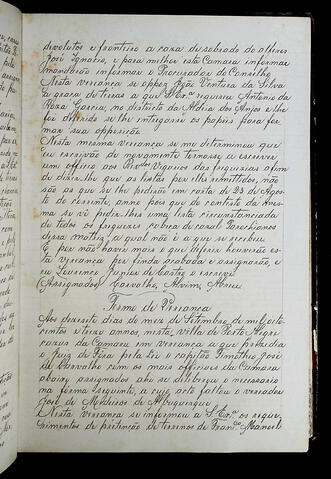 devolutos e fronteiro a caza de sobrado do alferes
José Ignacio, e para milhor esta Camara informar
mandarão informar o Procurador do Conselho
Nesta vereança se oppoz João Ventura da Silva
a graça de terras a qual S Exª requereu Antonio da
Roza Garcia, no districto da Aldeia dos Anjos e lhe
foi diferido se lhe intregasse os papeis para for
mar sua opposição
Nesta mesma vereança se me determinou que
eu escrivão de novamente tornasse a escrever
um officio aos Rdos Vigarios das freguezias afim
de dizer-lhe que as listas por elles remittidos, não
são as que se lhe pedirão em carta de 23 de Agos
to do corrente, anno pois que do contrato da mes
ma se vê pedir-lhes uma lista circunstanciada
de todos os freguezes cabeça de cazal Parochianos
dessa matriz, a qual não é a que se recebeu
E por não haver mais o que deferir houverão es
ta vereança por finda acabada e assignarão, e
eu Lourenço Junior de Castro o escrevi
(Assignados) Carvalho, Alvim, Abreu
Termo de Vereança
Aos dezesete dias do mez de Setembro de mil oito
centos e treze annos, nesta Villa de Porto Alegre
cazas da Camara em vereança a que prezidio
o Juiz de Fora pela Lei o capitão Timotheo José
de Carvalho com os mais officiaes da Camara
abaixo assignados ahi se deliberou o necessario
na forma seguinte, a cujo acto faltou o vereador
José de Medeiros de Albuquerque
Nesta vereança se informou a S Exª os reque
rimentos de pretenção de terrenos de Franco Manoel